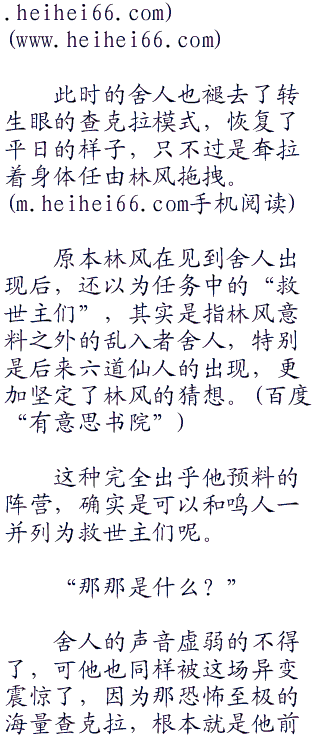 .heihei66.com)
(www.heihei66.com)
此时的舍人也褪去了转
生眼的查克拉模式，恢复了
平日的样子，只不过是耷拉
着身体任由林风拖拽。
(m.heihei66.com手机阅读)
原本林风在见到舍人出
现后，还以为任务中的“救
世主们”，其实是指林风意
料之外的乱入者舍人，特别
是后来六道仙人的出现，更
加坚定了林风的猜想。(百度
“有意思书院”)
这种完全出乎他预料的
阵营，确实是可以和鸣人一
并列为救世主们呢。
“那那是什么？”
舍人的声音虚弱的不得
了，可他也同样被这场异变
震惊了，因为那恐怖至极的
海量查克拉，根本就是他前